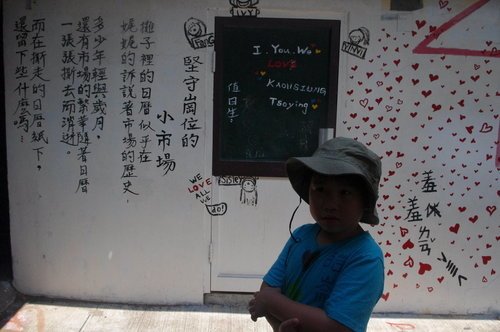 堅守崗位的
小市場
攤子裡的日曆似乎在
娓娓的訴說著市場的歷史,
多少年輕與歲月,
還有市場的繁華隨著日曆
一張張撕去而消逝.
而在撕走的日曆紙下,
還留下些什麼嗎…
I. You. We
LOVE
KAOHSIUNG
Tsoying
值日生:
WE
LOVE
ALL
WE
do!